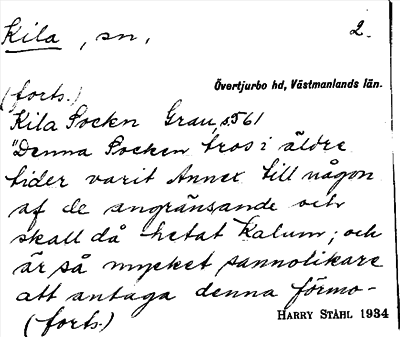 Kila, sn,
2.
Övertjurbo hd, Västmanlands län.
(forts.)
Kila Socken Grau, s. 561
"Denna Socken tros i äldre
tider varit Annex till någon
af de angränsande och
skall då hetat Kalum; och
är så mycket sannolikare
att antaga denna förmo-
(forts.)
HARRY STÅHL 1934